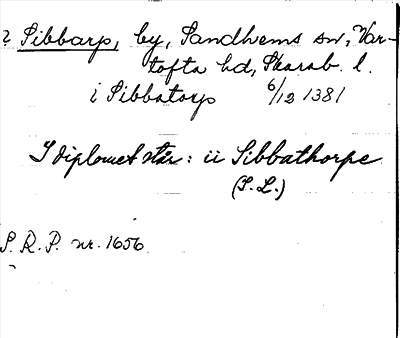 ? Sibbarp, by, Sandhems sn, Var-
tofta hd, Skarab. l.
i Sibbatorp 6/12 1381
I diplomet står: ii Sibbathorpe
(S.L.)
S.R.P. nr. 1656